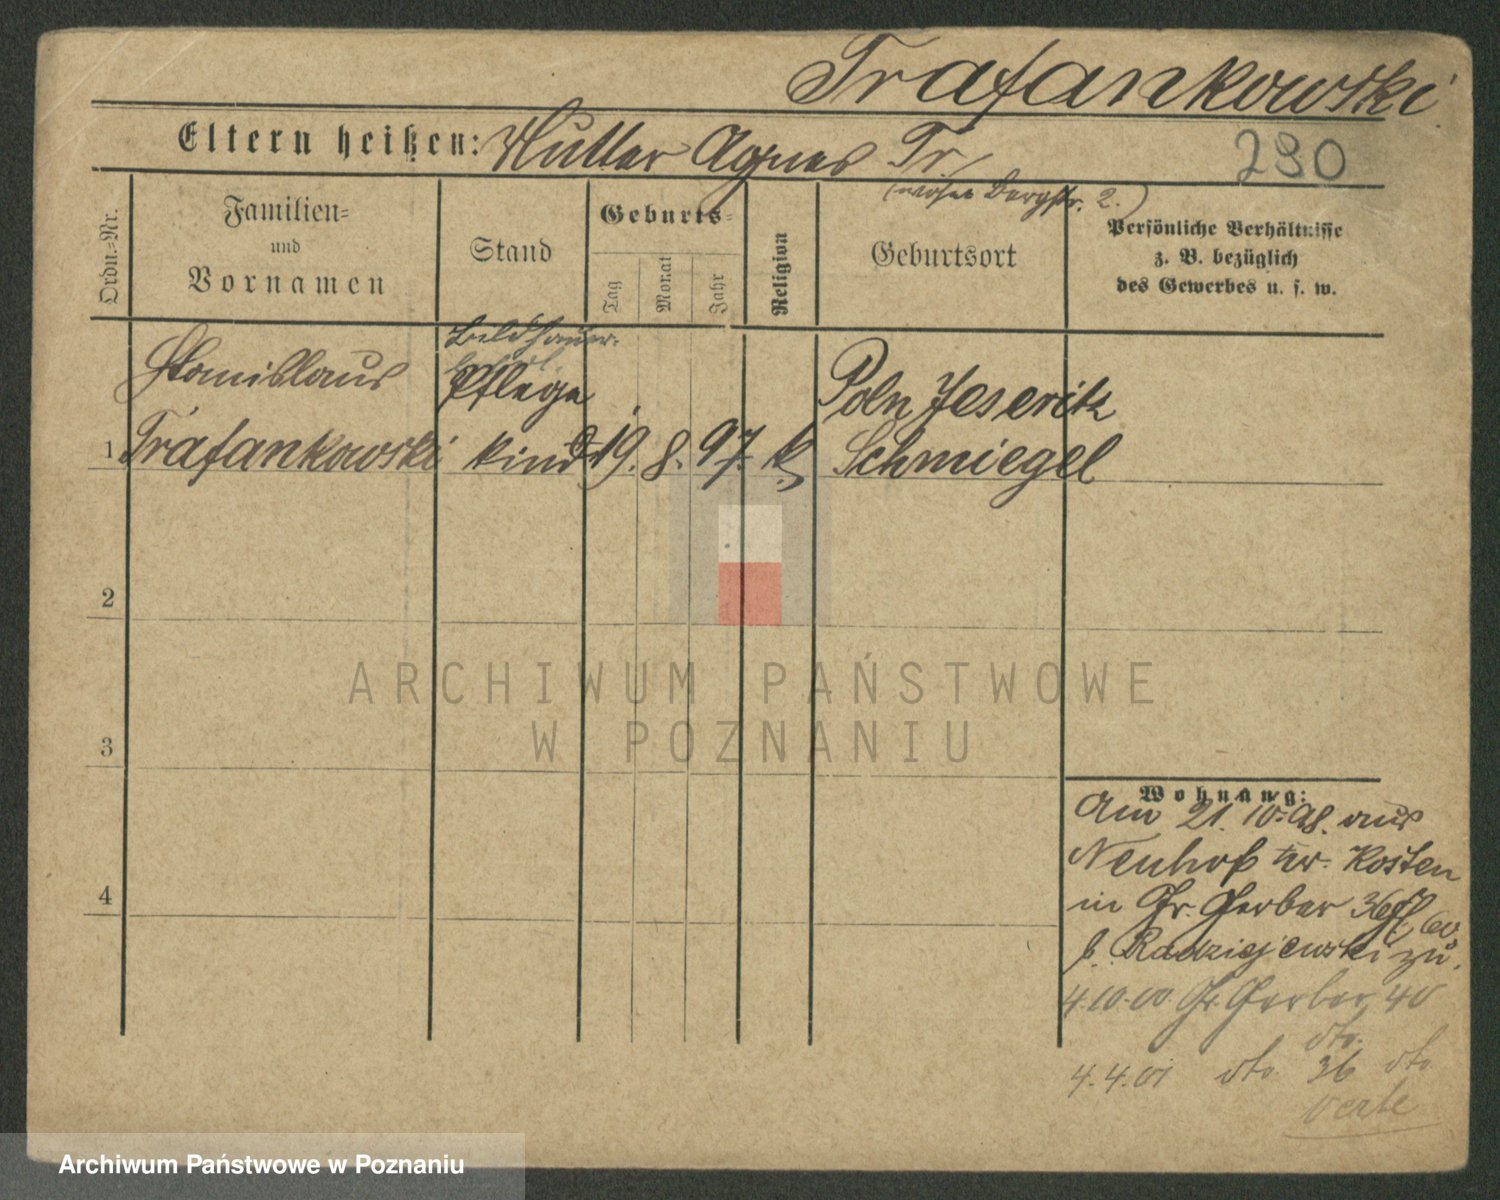 Trafankowski
Eltern heißen: Mutter Agnes Tr.
(wohnt Bergstr. 2.)
290
Ordn.=Nr.
Familien=
und
Vornamen
Stand
Geburts=
Tag
Monat
Jahr
Religion
Geburtsort
Persönliche Verhältnisse
z. B. bezüglich
des Gewerbes u. s. w.
Bildhauer-
Stanislaus Pflege Poln Jeseritz
1 Trafankowski kind 19. 8. 97. k. Schmiegel
2
3
4
ARCHIWUM PAŃSTWOWE
W POZNANIU
Wohnung:
Am 21.10.98. aus
Neuhof Kr. Kosten
in Gr. Gerber 36
b. Radziejewski zu.
4.10.00. Gr. Gerber 40
dto.
4.4.01 dto. 36 dto.
verte
Archiwum Państwowe w Poznaniu